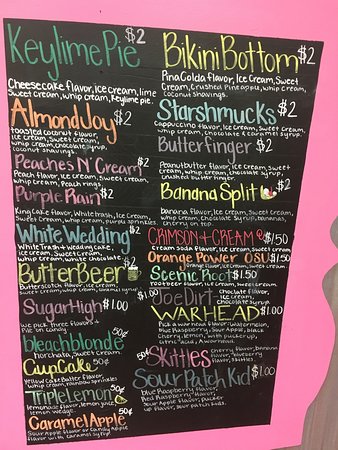 Keylime Pie $2
Cheesecake flavor, ice cream, lime
Sweet Cream, whip cream, Keylime pie.
Almond Joy $2
toasted coconut flavor,
ice cream, sweet cream,
whip cream, chocolate syrup,
coconut shavings.
Peaches N' Cream $2
Peach flavor, ice cream, Sweet cream,
whip cream, Peach rings
Purple Rain $2
King Cake flavor, White trash, Ice Cream,
Sweet Cream, whip cream, purple sprinkles.
White Wedding $2
White Trash + Wedding Cake,
ice cream, Sweet cream,
whip cream, white chocolate
ButterBeer $2
Butterscotch flavor, Ice cream,
Sweet cream, whip cream, caramel Syrup
Sugar High $1.00
we pick three flavors +
Pile on candy
bleach blonde 50¢
horchata, Sweet cream.
Cup Cake 50¢
Yellow cake batter flavor,
whip cream, rainbow sprinkles
Triple Lemon 50¢
lemonade flavor, lemon juice,
lemon wedge.
Caramel Apple 50¢
Sour Apple flavor or Candy Apple
flavor with Caramel Syrup.
Bikini Bottom $2
Pina Colda flavor, Ice Cream, Sweet
Cream, Crushed Pineapple, whip Cream,
Coconut Shavings.
Starshmucks $2
Cappuccino flavor, Ice Cream, Sweet Cream,
whip cream, chocolate & caramel syrup.
Butterfinger $2
Peanutbutter flavor, ice cream, Sweet
cream, whip cream, chocolate syrup,
crushed butter finger
Banana Split $2
banana flavor, Ice Cream, Sweet Cream,
whip cream, Chocolate Syrup, bananas,
cherry on top.
Crimson + Cream $1.50
Cream Soda flavor, Ice Cream, Sweet Cream.
Orange Power OSU $1.50
flavor, ice cream, Sweet cream.
Scenic Root $1.50
rootbeer flavor, ice cream, Sweet cream.
Joe Dirt $1.50
chocolate flavor,
ice cream,
chocolate syrup.
WARHEAD $1.00
Pick a warhead flavor: Watermelon,
blue Raspberry, Sour Apple, black
Cherry, lemon, with pucker up,
Citric Acid, a Warhead.
50¢ Skittles
cherry flavor, banana
flavor, blueberry
flavor, Skittles.
Sour Patch Kid $1.00
blue Raspberry flavor,
Red Raspberry flavor,
Sour Apple flavor, pucker
up flavor, Sour patch kids.